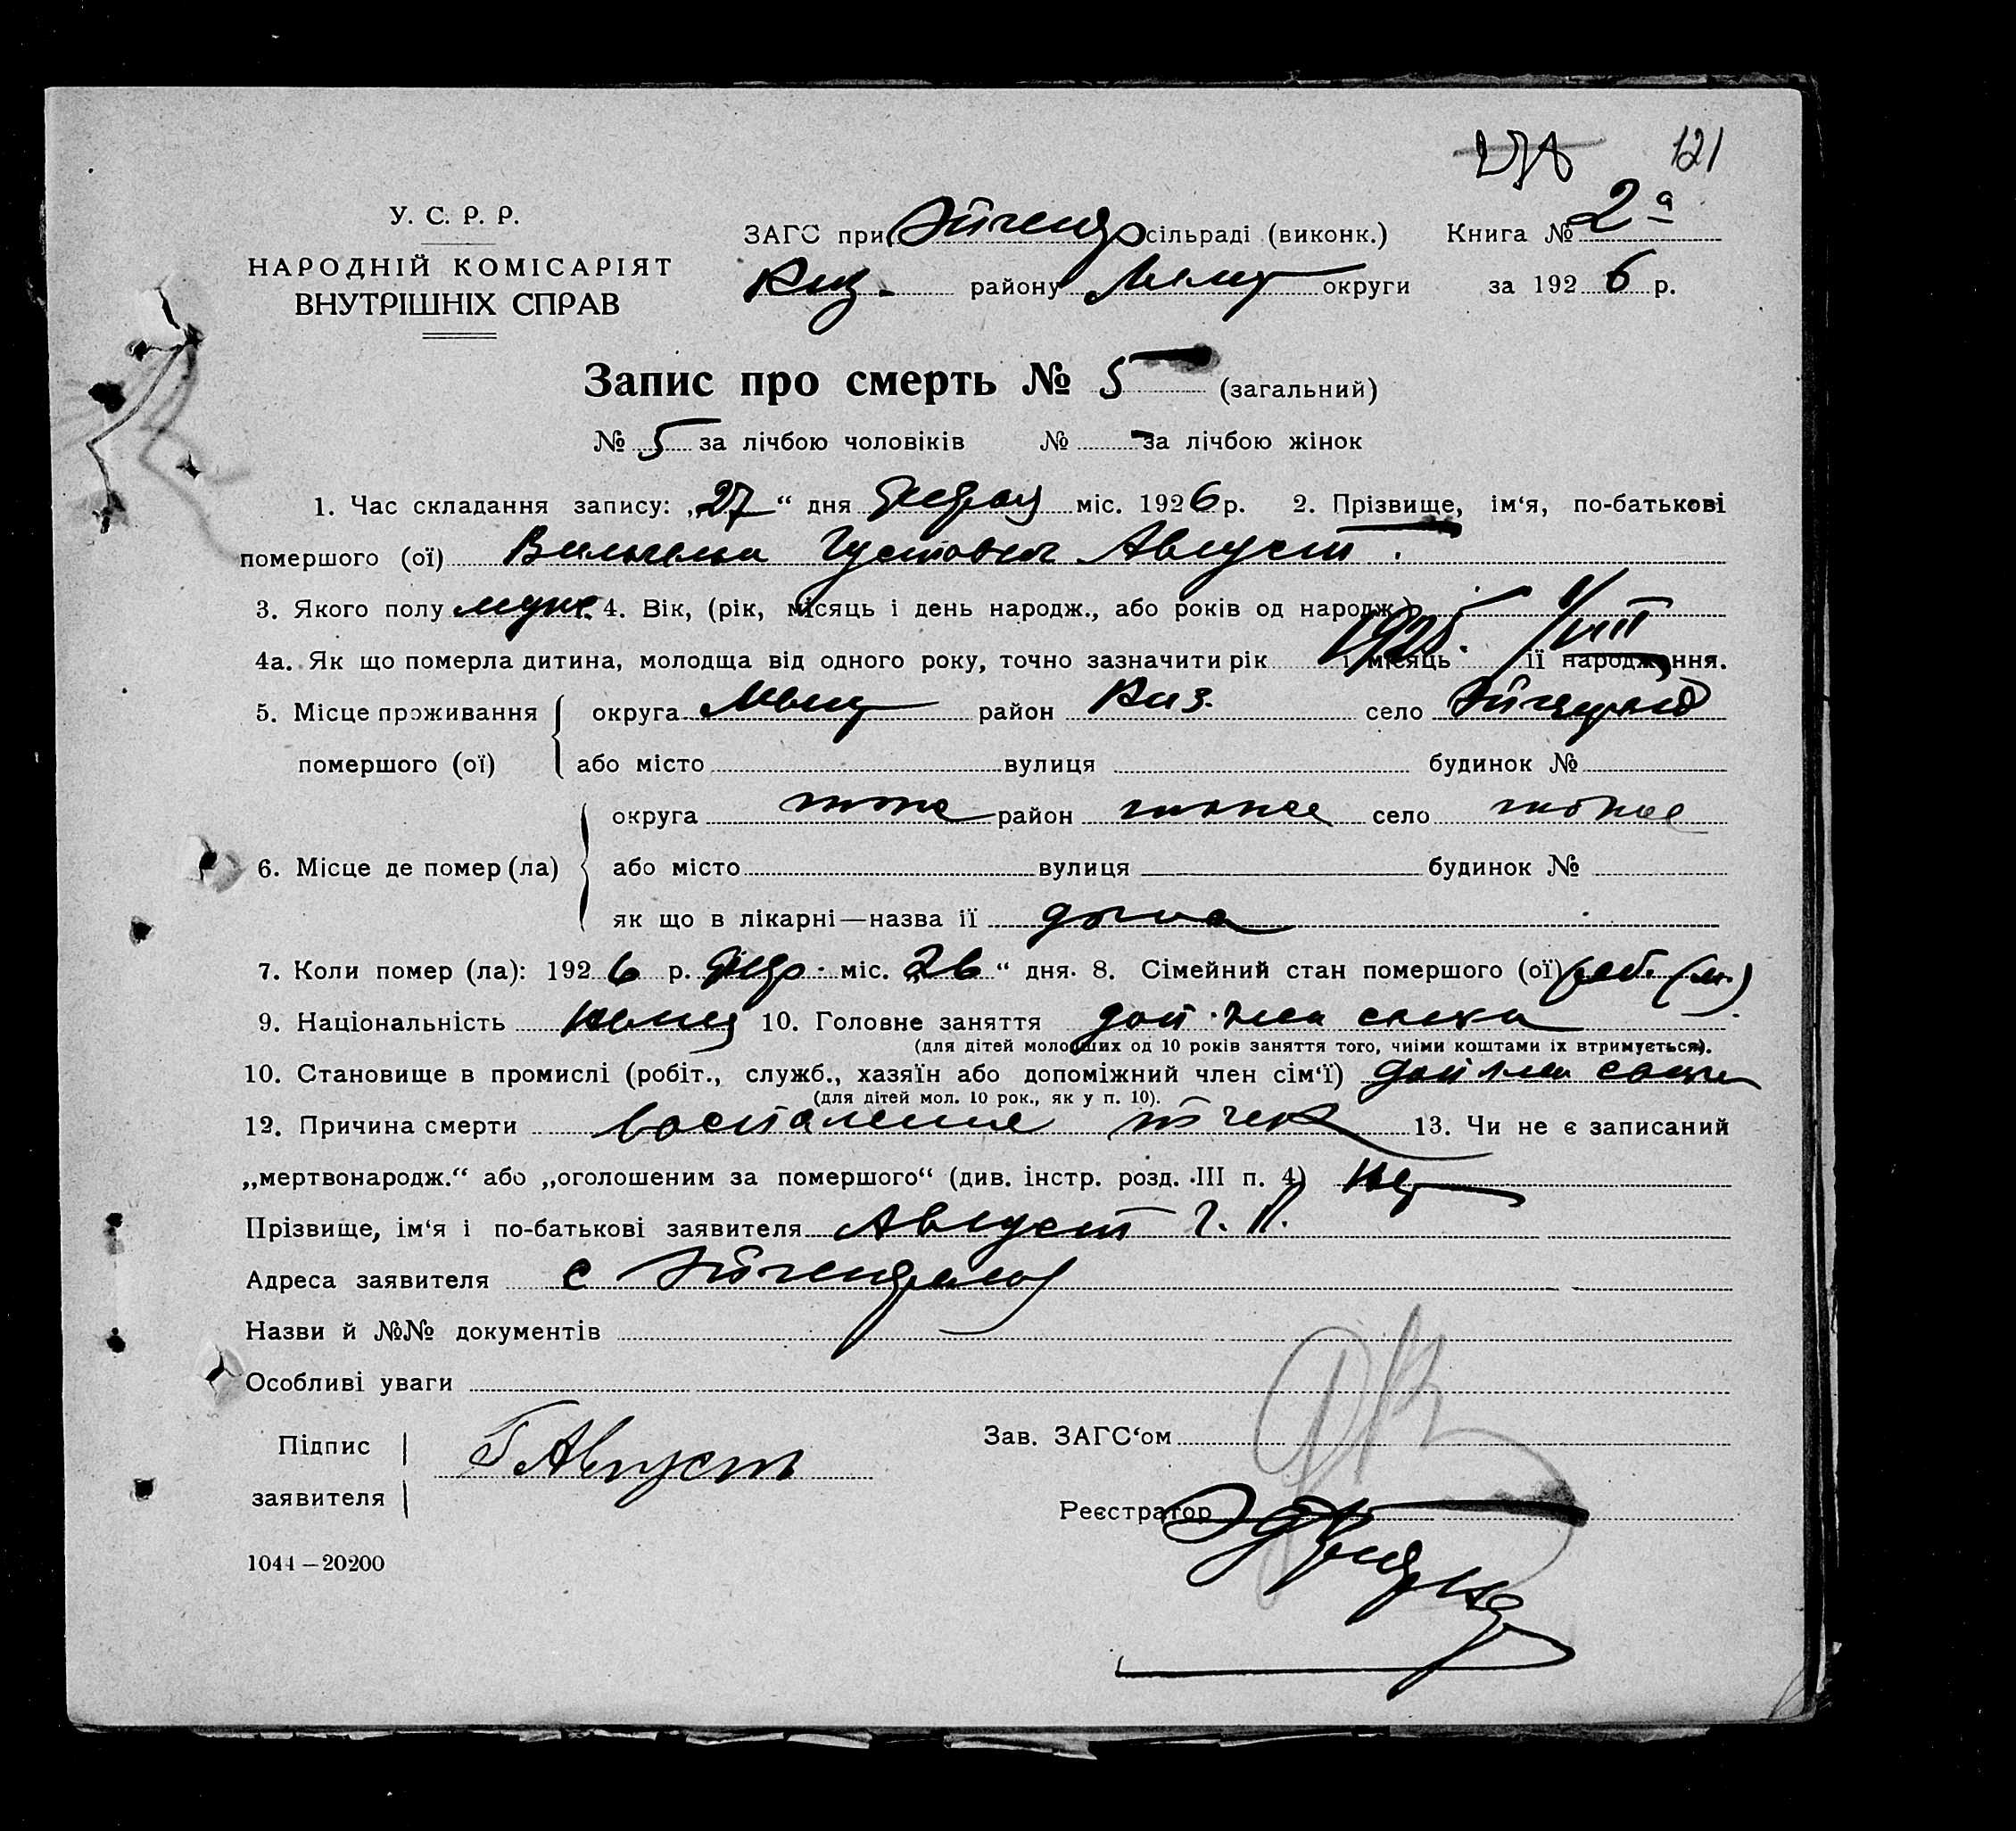 121
У. С. Р. Р.
НАРОДНІЙ КОМІСАРІЯТ
ВНУТРІШНІХ СПРАВ
ЗАГС при сільраді (виконк.) Книга № 2а
району округи за 1926 р.
Запис про смерть № 5 (загальний)
№ 5 за лічбою чоловіків № — за лічбою жінок
1. Час складання запису: „27“ дня міс. 1926 р. 2. Прізвище, ім‘я, по-батькові
помершого (ої) Вильгельм Густович Август.
3. Якого полу муж. 4. Вік, (рік, місяць і день народж., або років од народж.)
1925. 1/VIII
4а. Як що померла дитина, молодша від одного року, точно зазначити рік і місяць її народження.
5. Місце проживання округа район село
помершого (ої) або місто вулиця будинок №
округа тоже район тоже село тоже
6. Місце де помер (ла) або місто вулиця будинок №
як що в лікарні—назва її дома
7. Коли помер (ла): 1926 р. міс. „26“ дня. 8. Сімейний стан помершого (ої)
9. Національність немец 10. Головне заняття
(для дітей молодших од 10 років заняття того, чиїми коштами їх втримується).
10. Становище в промислі (робіт., служб., хазяїн або допоміжний член сім‘ї)
(для дітей мол. 10 рок., як у п. 10).
12. Причина смерти воспаление почек 13. Чи не є записаний
„мертвонародж.“ або „оголошеним за помершого“ (див. інстр. розд. III п. 4) нет
Прізвище, ім‘я і по-батькові заявителя Август Г. П.
Адреса заявителя с
Назви й №№ документів
Особливі уваги
Підпис
заявителя Г Август
Зав. ЗАГС‘ом
Реєстратор
1044—20200